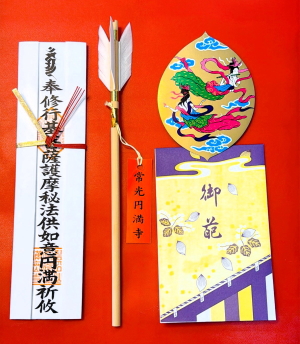 奉修行基菩薩護摩秘法供如意円満祈攸
常光円満寺
御葩